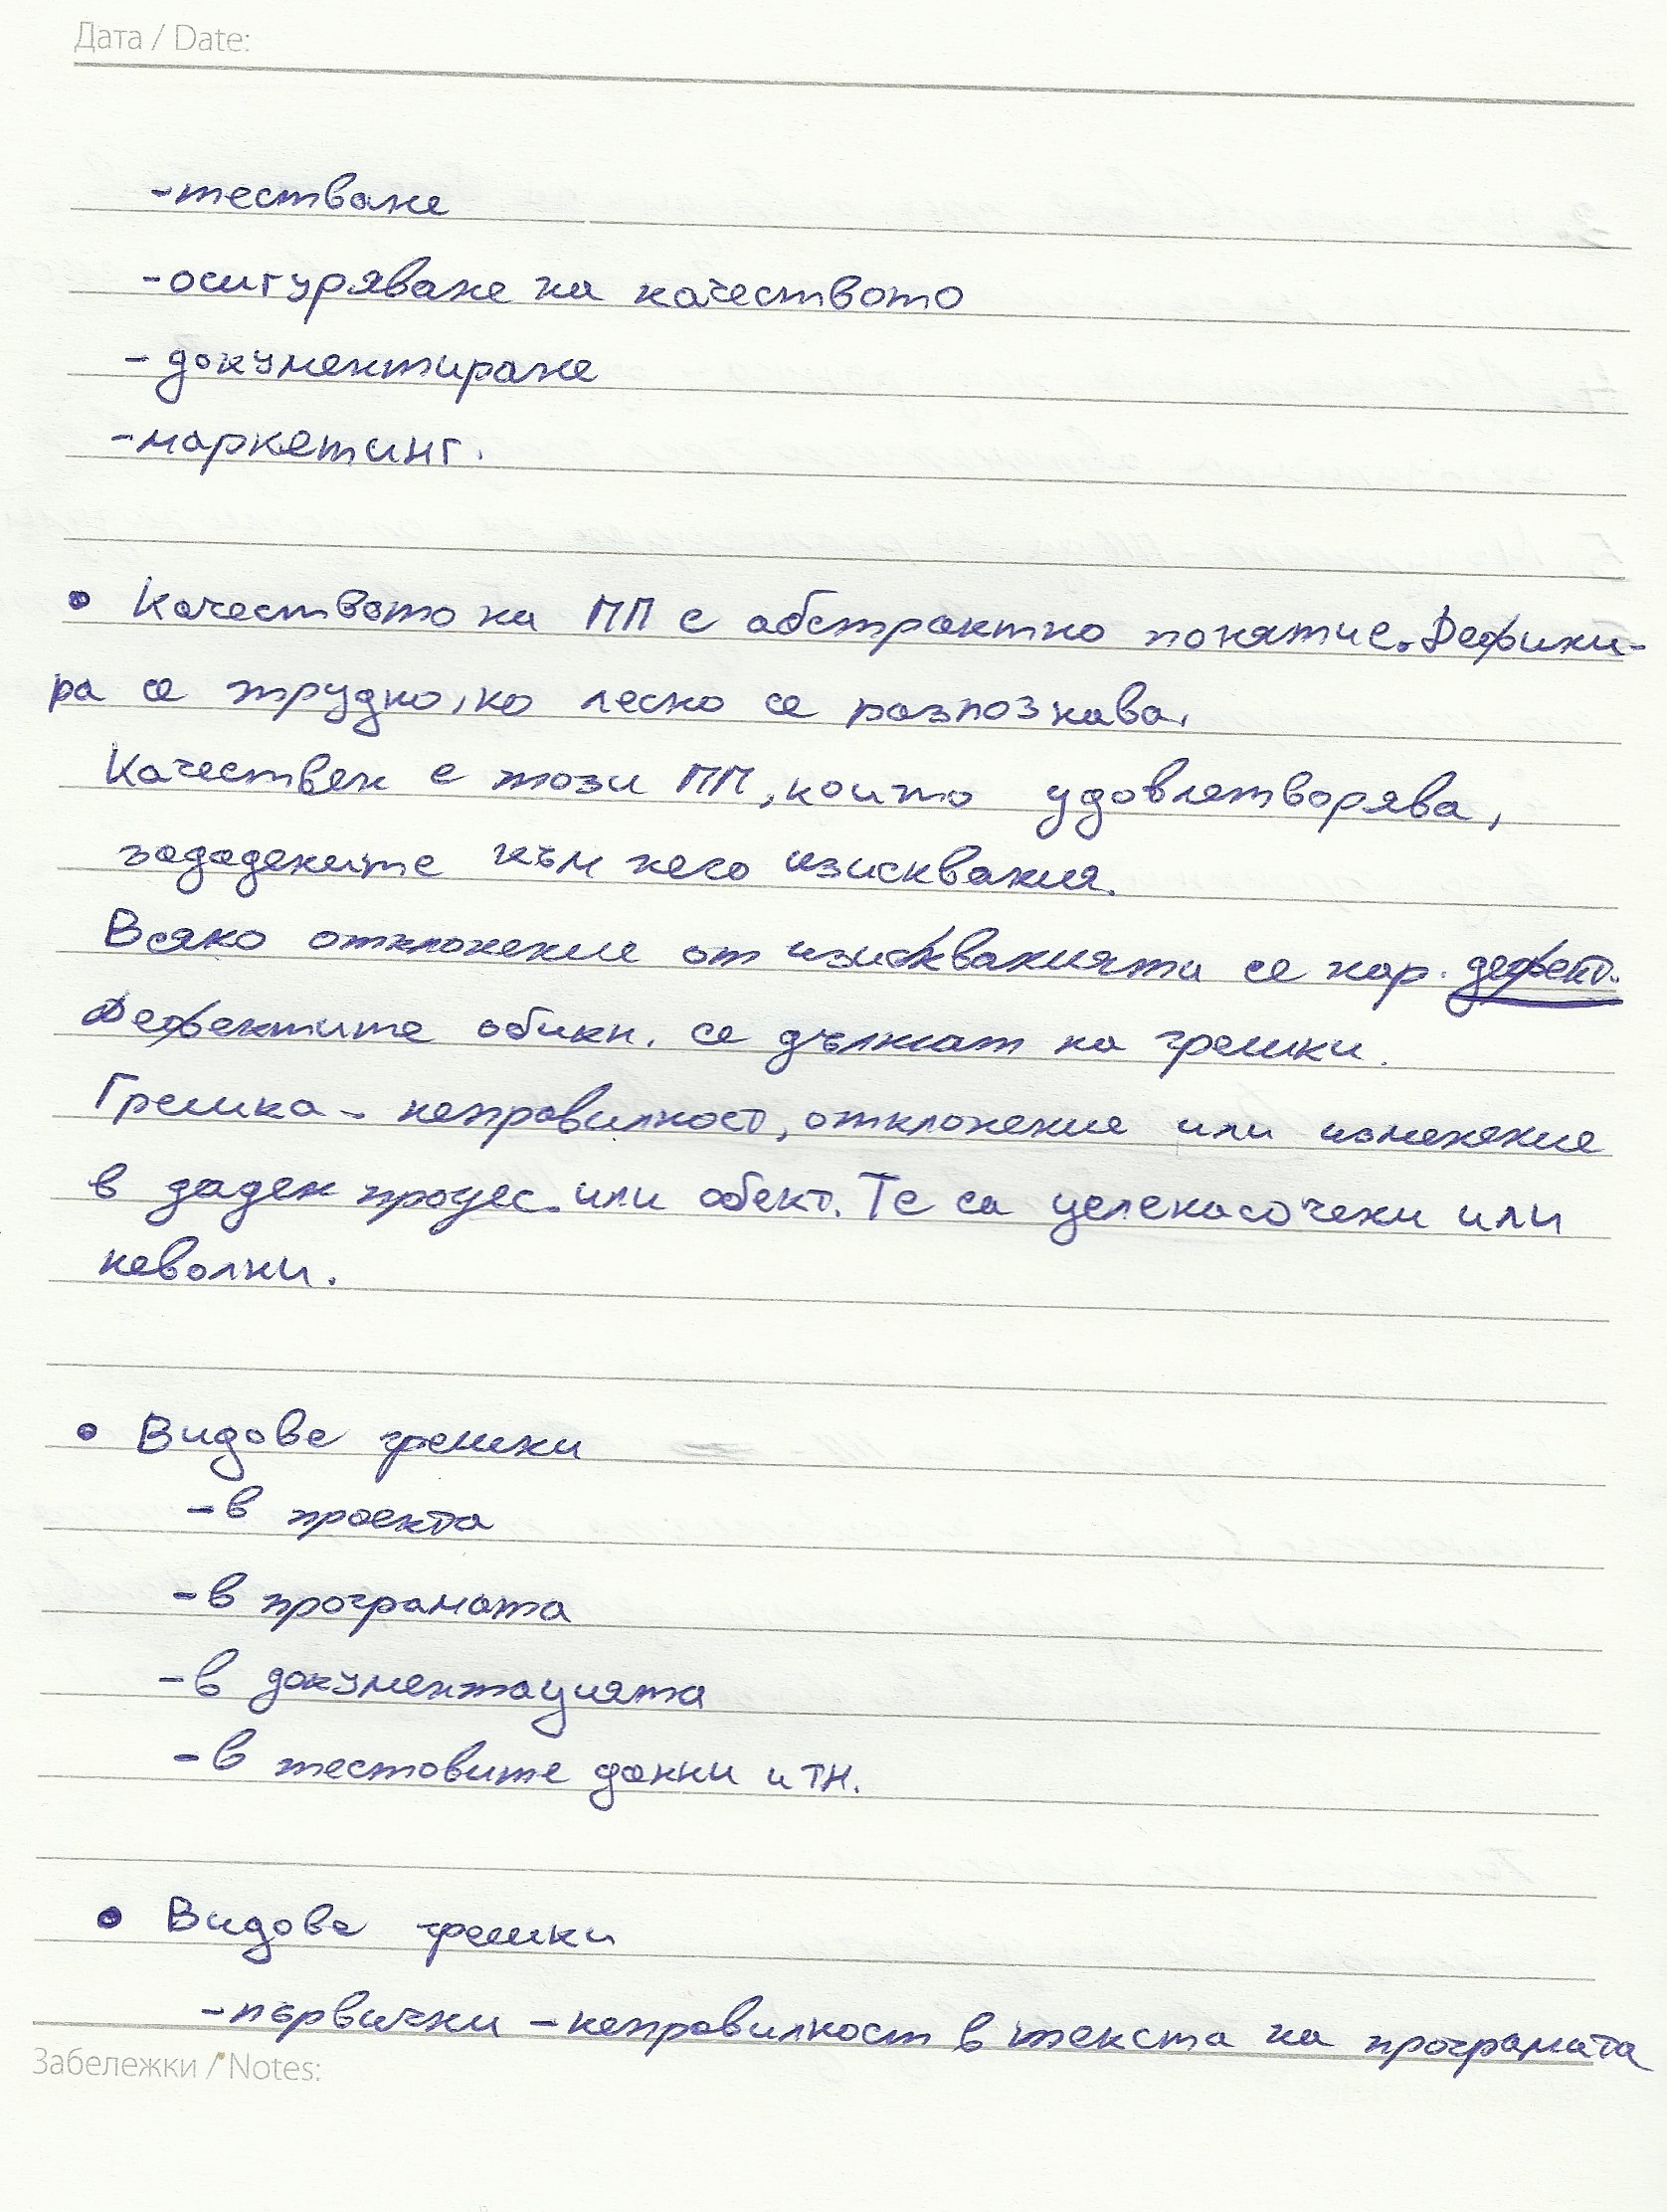 Дата / Date:
-тестване
-осигуряване на качеството
- документиране
-маркетинг.
• Качеството на ПП е абстрактно понятие. Дефини-
ра се трудно, но лесно се разпознава.
Качествен е този ПП, който удовлетворява,
зададените към него изисквания.
Всяко отклонение от изискванията се нар. дефект.
Дефектите обикн. се дължат на грешки.
Грешка - неправилност, отклонение или изменение
в даден процес. или обект. Те са целенасочени или
неволни.
• Видове грешки
-в проекта
-в програмата
-в документацията
-в тестовите данни и тн.
• Видове грешки
-първични - неправилност в текста на програмата
Забележки / Notes: